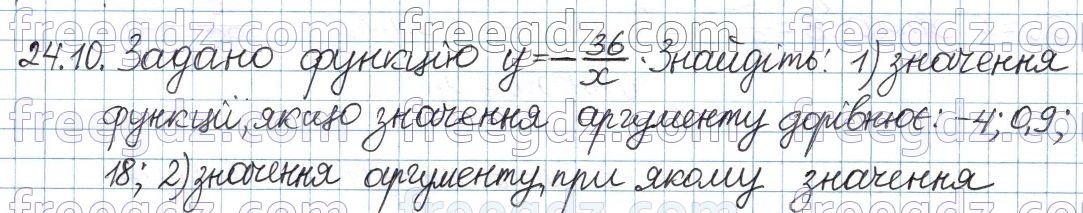 24.10. Задано функцію y=-36/x. Знайдіть: 1) значення
функції, якщо значення аргументу дорівнює: -4; 0,9;
18; 2) значення аргументу, при якому значення